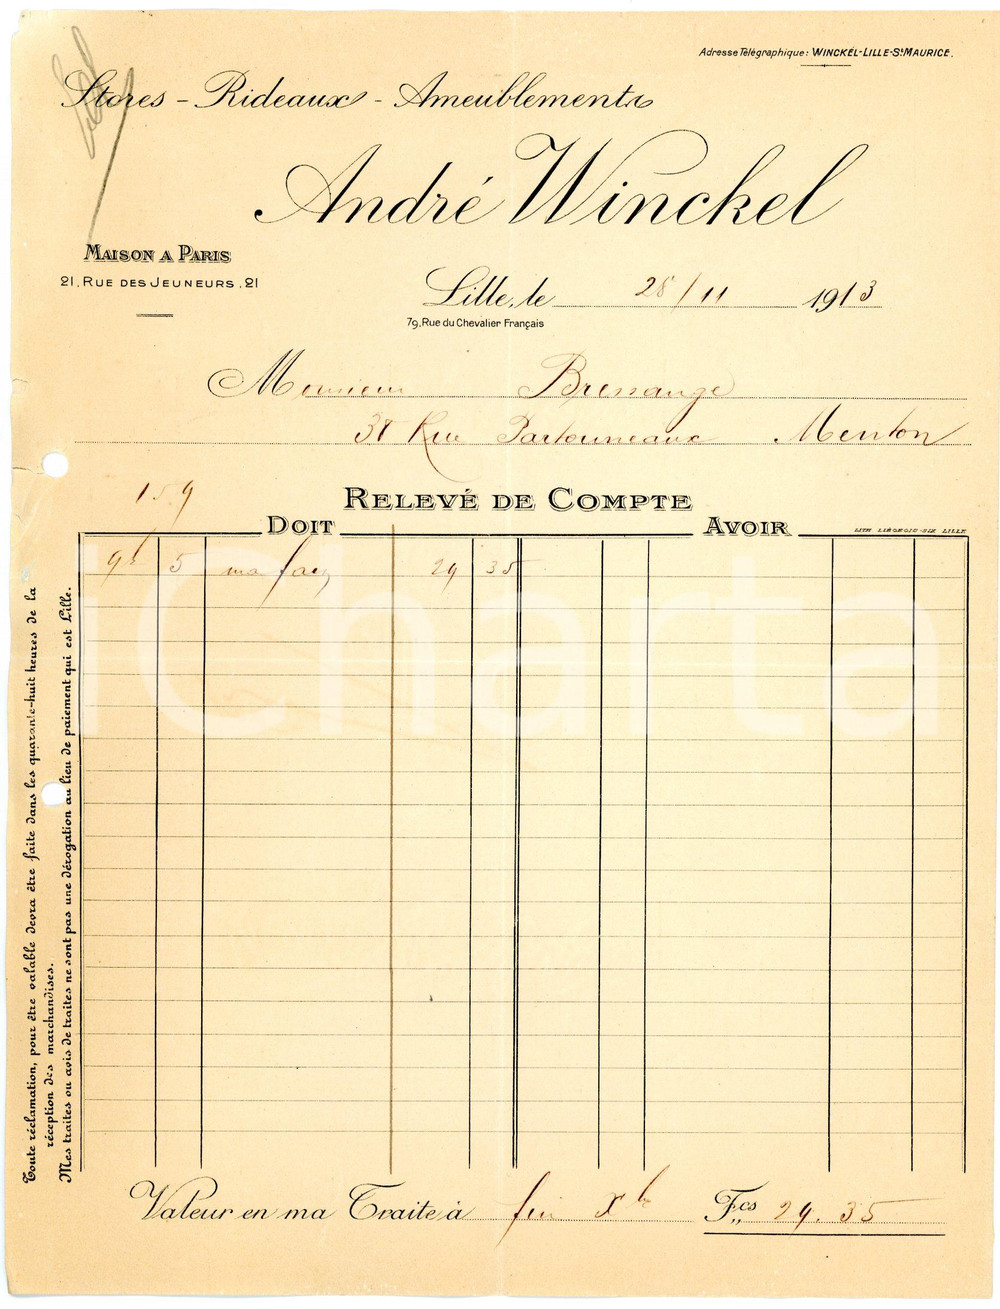 Adresse Télégraphique: WINCKEL-LILLE-St MAURICE.
Stores - Rideaux - Ameublements
André Winckel
MAISON A PARIS
21, RUE DES JEUNEURS, 21
Lille, le 28/11 1913
79, Rue du Chevalier Français
Monsieur Bressange
38 Rue Partouneaux Menton
159
RELEVÉ DE COMPTE
DOIT AVOIR
LITH. LIÉGEOIS-SIX LILLE
9b 5 ma fac 29 35
Toute réclamation, pour être valable devra être faite dans les quarante-huit heures de la
réception des marchandises.
Mes traites ou avis de traites ne sont pas une dérogation au lieu de paiement qui est Lille.
Valeur en ma Traite à fin Xbre Fcs 29.35
iCharta